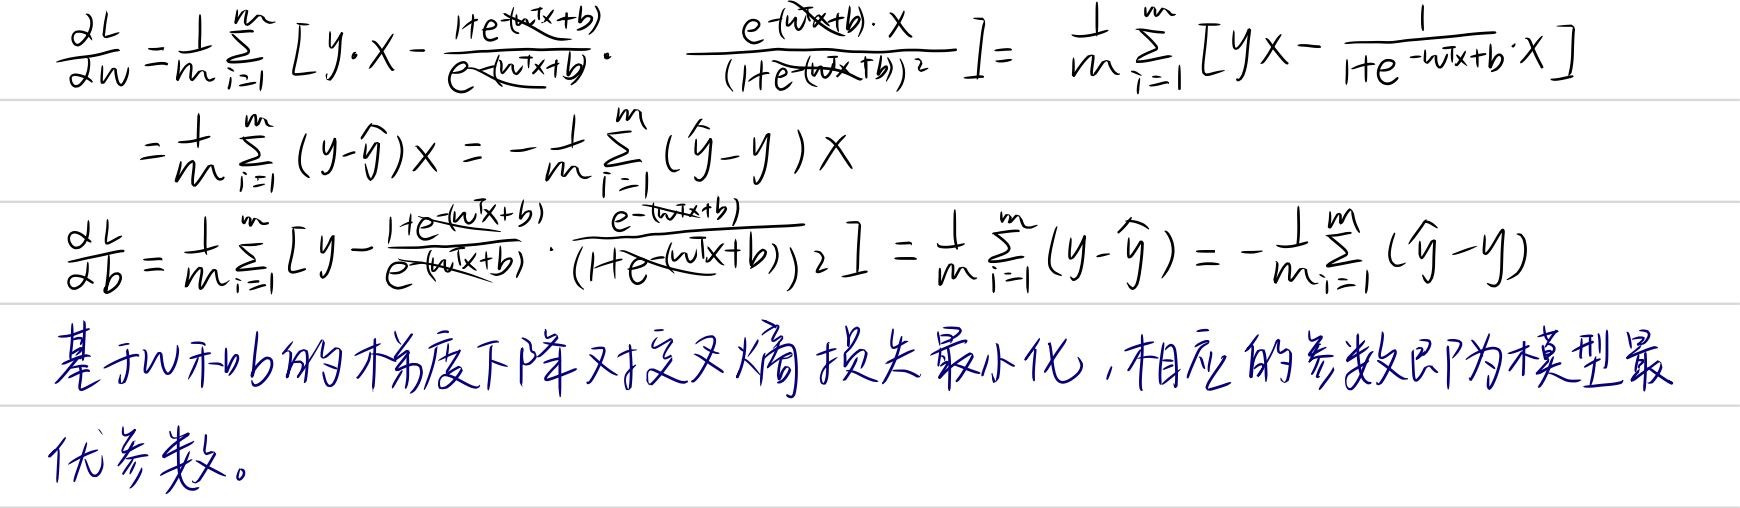 ∂L/∂w = 1/m ∑_{i=1}^{m} [y·x - (1+e^{-(wᵀx+b)})/(e^{-(wᵀx+b)}) · (e^{-(wᵀx+b)}·x)/((1+e^{-(wᵀx+b)})²)] = 1/m ∑_{i=1}^{m} [yx - 1/(1+e^{-wᵀx+b})·x]
= 1/m ∑_{i=1}^{m} (y-ŷ)x = -1/m ∑_{i=1}^{m} (ŷ-y)x
∂L/∂b = 1/m ∑_{i=1}^{m} [y - (1+e^{-(wᵀx+b)})/(e^{-(wᵀx+b)}) · (e^{-(wᵀx+b)})/((1+e^{-(wᵀx+b)})²)] = 1/m ∑_{i=1}^{m} (y-ŷ) = -1/m ∑_{i=1}^{m} (ŷ-y)
基于w和b的梯度下降对交叉熵损失最小化,相应的参数即为模型最
优参数。